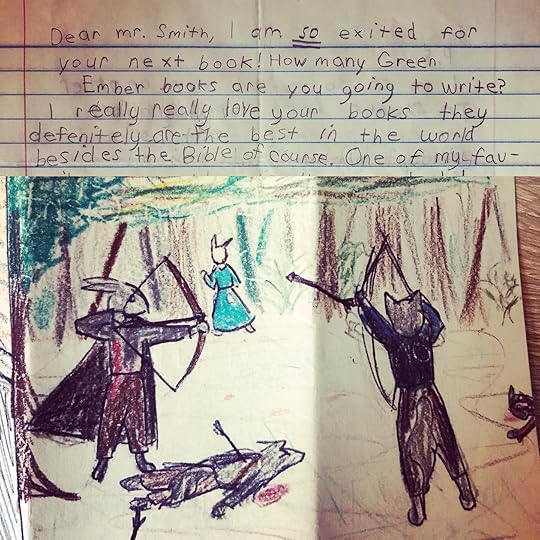 Dear mr. Smith, I am so exited for
your next book! How many Green
Ember books are you going to write?
I really really love your books they
defenitely are the best in the world
besides the Bible of course. One of my fav-